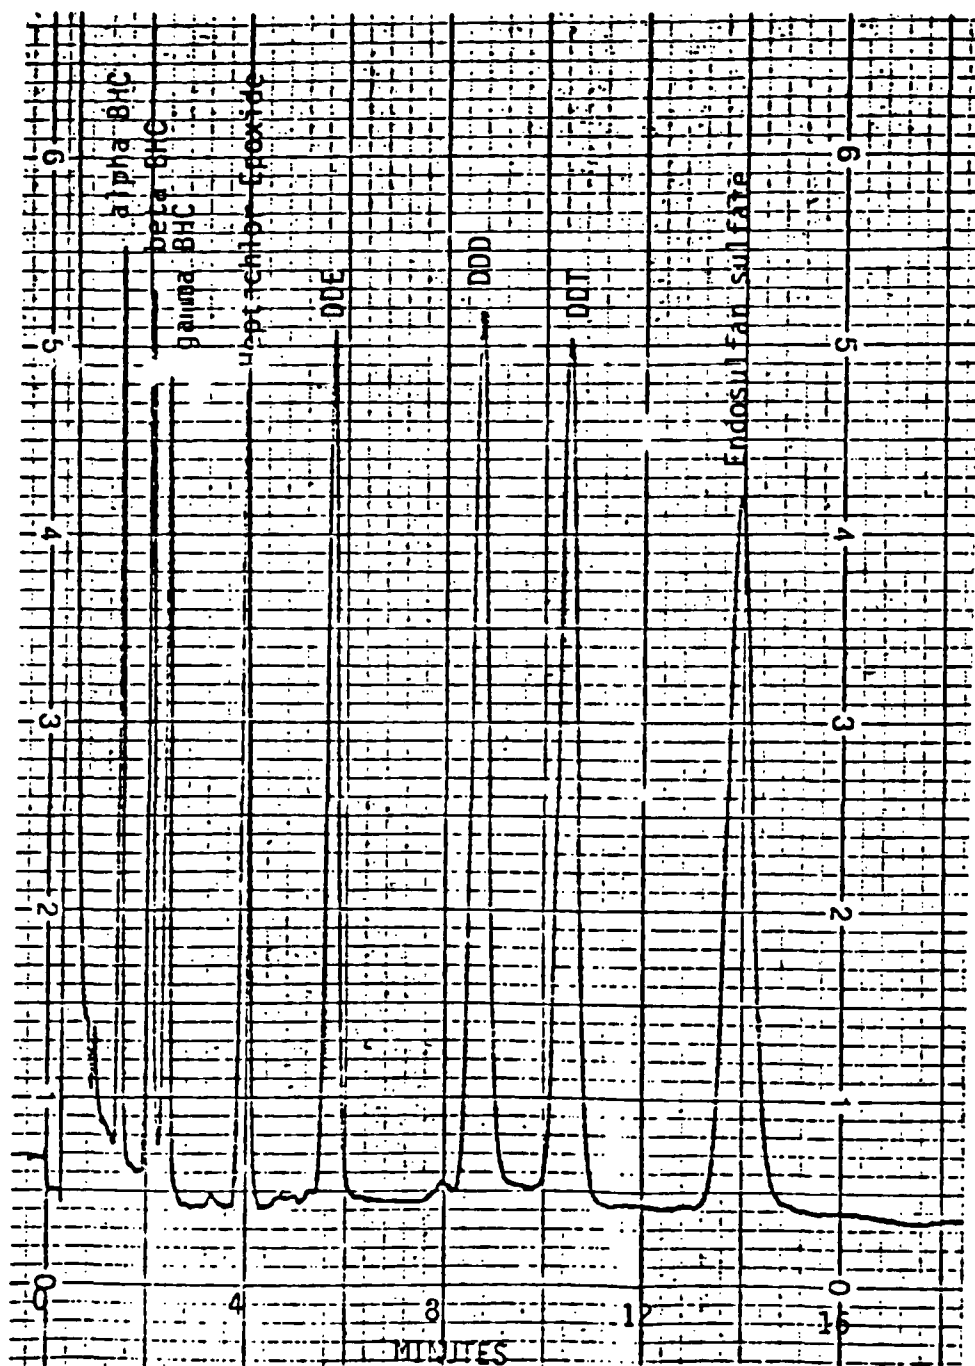 alpha BHC
beta BHC
gamma BHC
Heptachlor Epoxide
DDE
DDD
DDT
Endosulfan sulfate
6
5
4
3
2
1
0
6
5
4
3
2
1
0
0
4
8
12
16
MINUTES